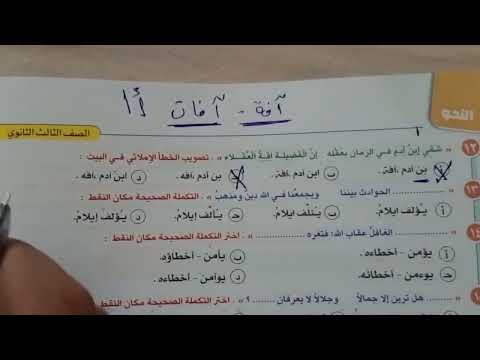 آفة - آفات أا
النحو
الصف الثالث الثانوي
١٢ « شقي إبن آدم في الزمان بعقله إن الفضيلة آفة العقلاء » . تصويب الخطأ الإملائي في البيت :
أ بن آدم ، آفة . ب ابن آدم ، آفة . بن آدم ، آفه . د ابن آدم ، آفه .
١٣ « ........ الحوادث بيننا ويجمعنا في الله دين ومذهب » اختر التكملة الصحيحة مكان النقط :
أ يؤلف إيلامُ. ب يئلف إيلامُ. جـ يألف إيلامُ. د يؤلف ايلامُ.
١٤ « ........ الغافلُ عقاب الله؛ فتغره ........ » . اختر التكملة الصحيحة مكان النقط :
أ يؤمن - أخطاءه. ب يأمن - أخطاؤه.
جـ يوءمن - أخطائه. د يوأمن - أخطاءه.
« ........ هل ترين إلا جمالاً وجلالاً لا يعرفان ........ ؟ » . اختر التكملة الصحيحة مكان النقط :